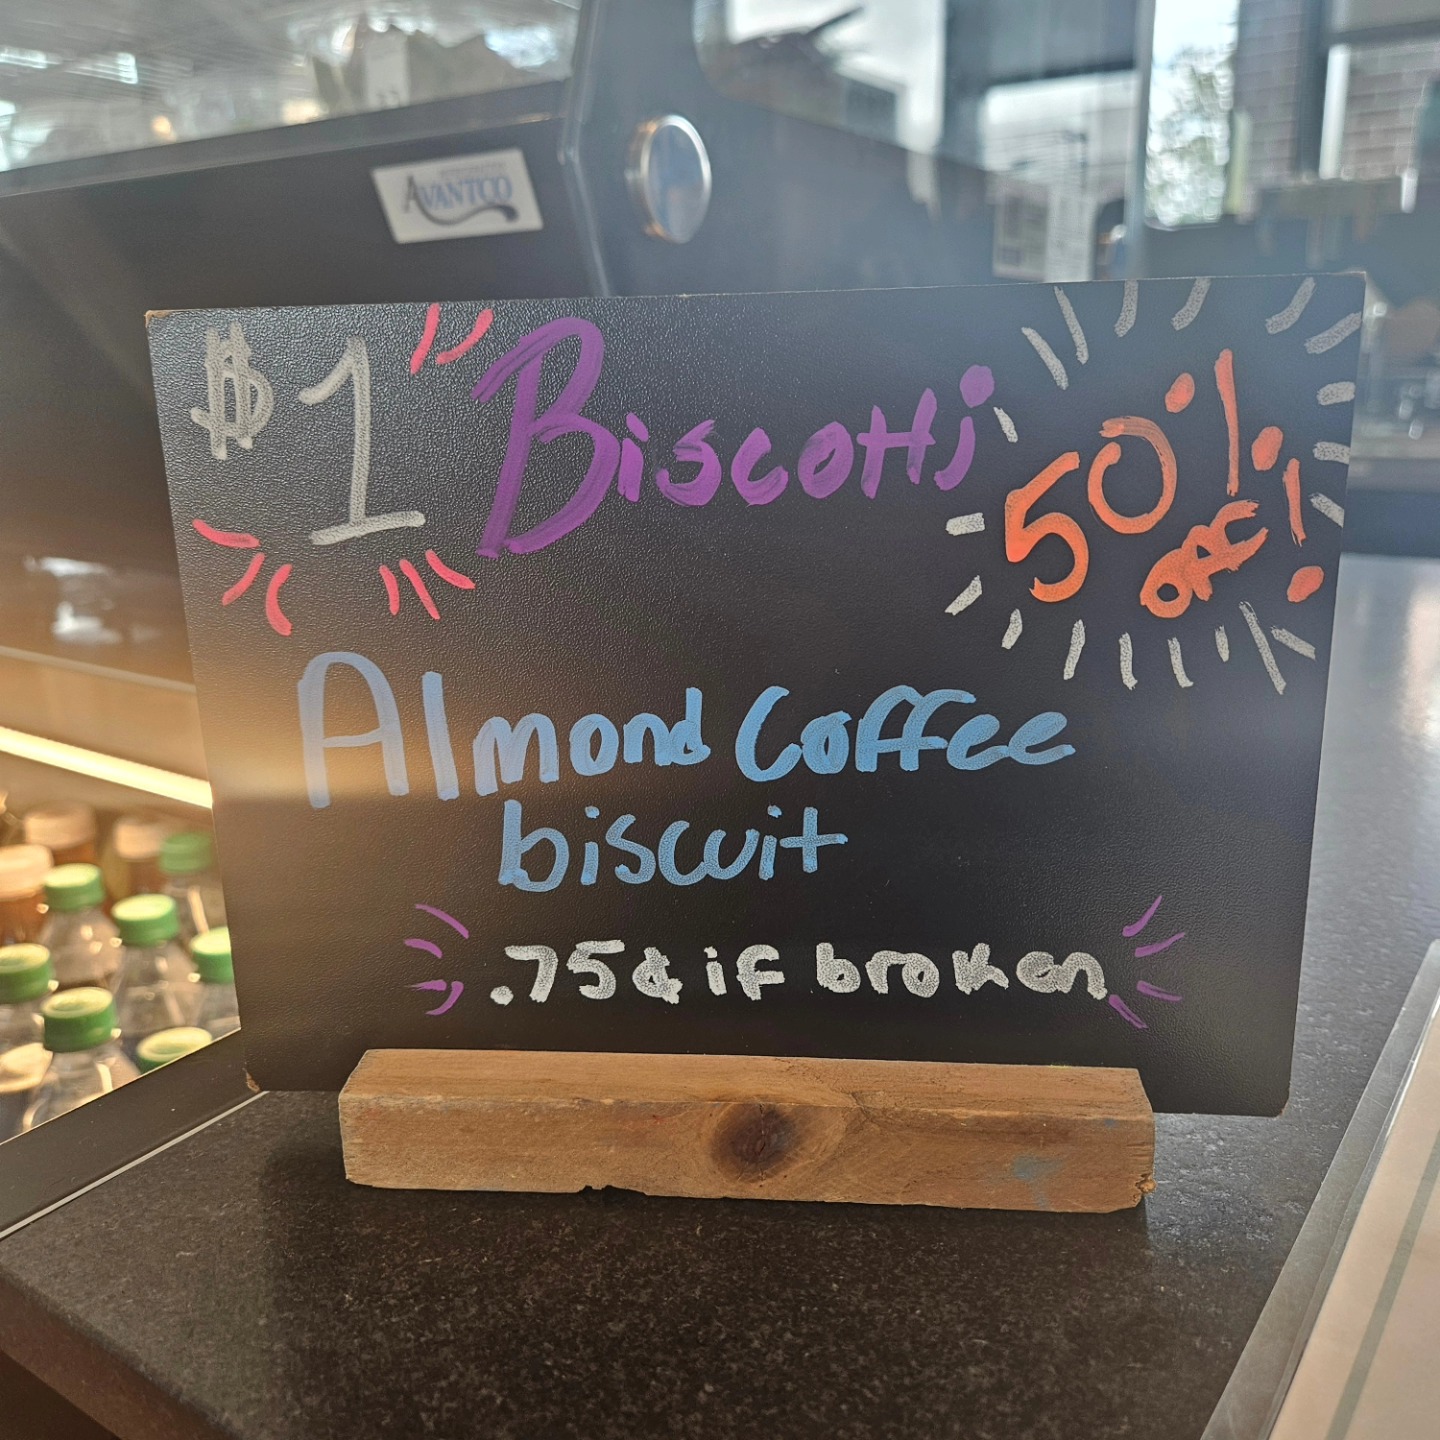 AVANTCO
$1 Biscotti 50% OFF!
Almond Coffee
biscuit
.75¢ if broken